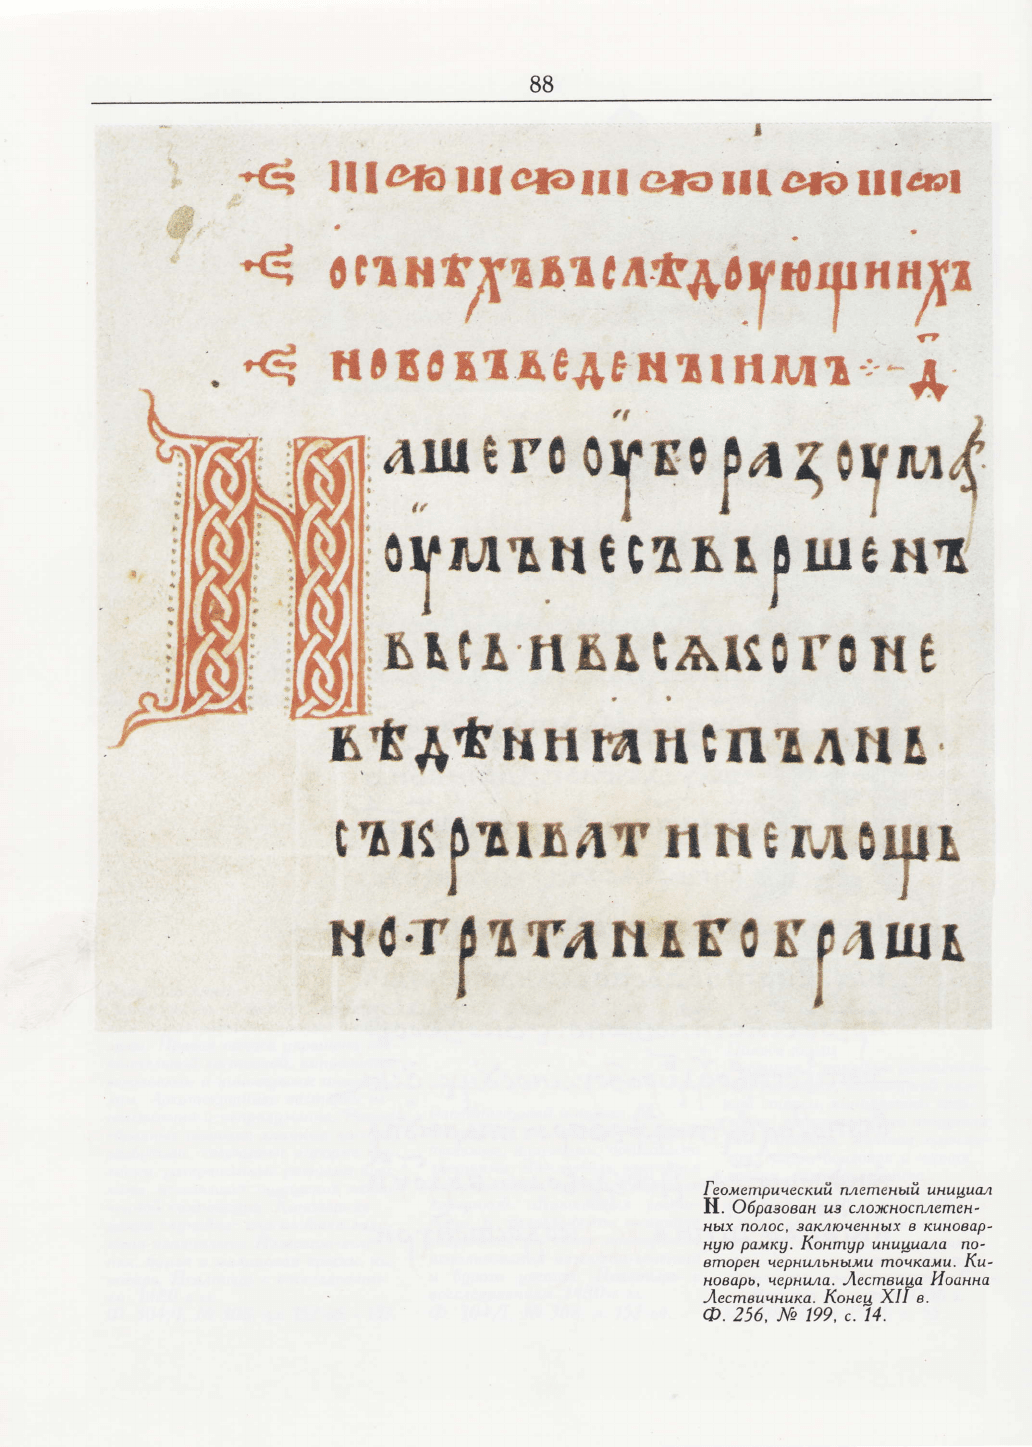 88
осънѣхъвъслѣдоующиихъ
нововъведенъіимъ ⁘ – д҃
Нашегооуборазоума
оумънесъвьршенъ
вьсь·ивьсѧкогоне
вѣдѣниꙗиспълнь·
съкръіватинемощь
но·трътаньбобрашь
Геометрический плетеный инициал
N. Образован из сложносплетен-
ных полос, заключенных в киновар-
ную рамку. Контур инициала по-
вторен чернильными точками. Ки-
новарь, чернила. Лествица Иоанна
Лествичника. Конец XII в.
Ф. 256, № 199, с. 14.